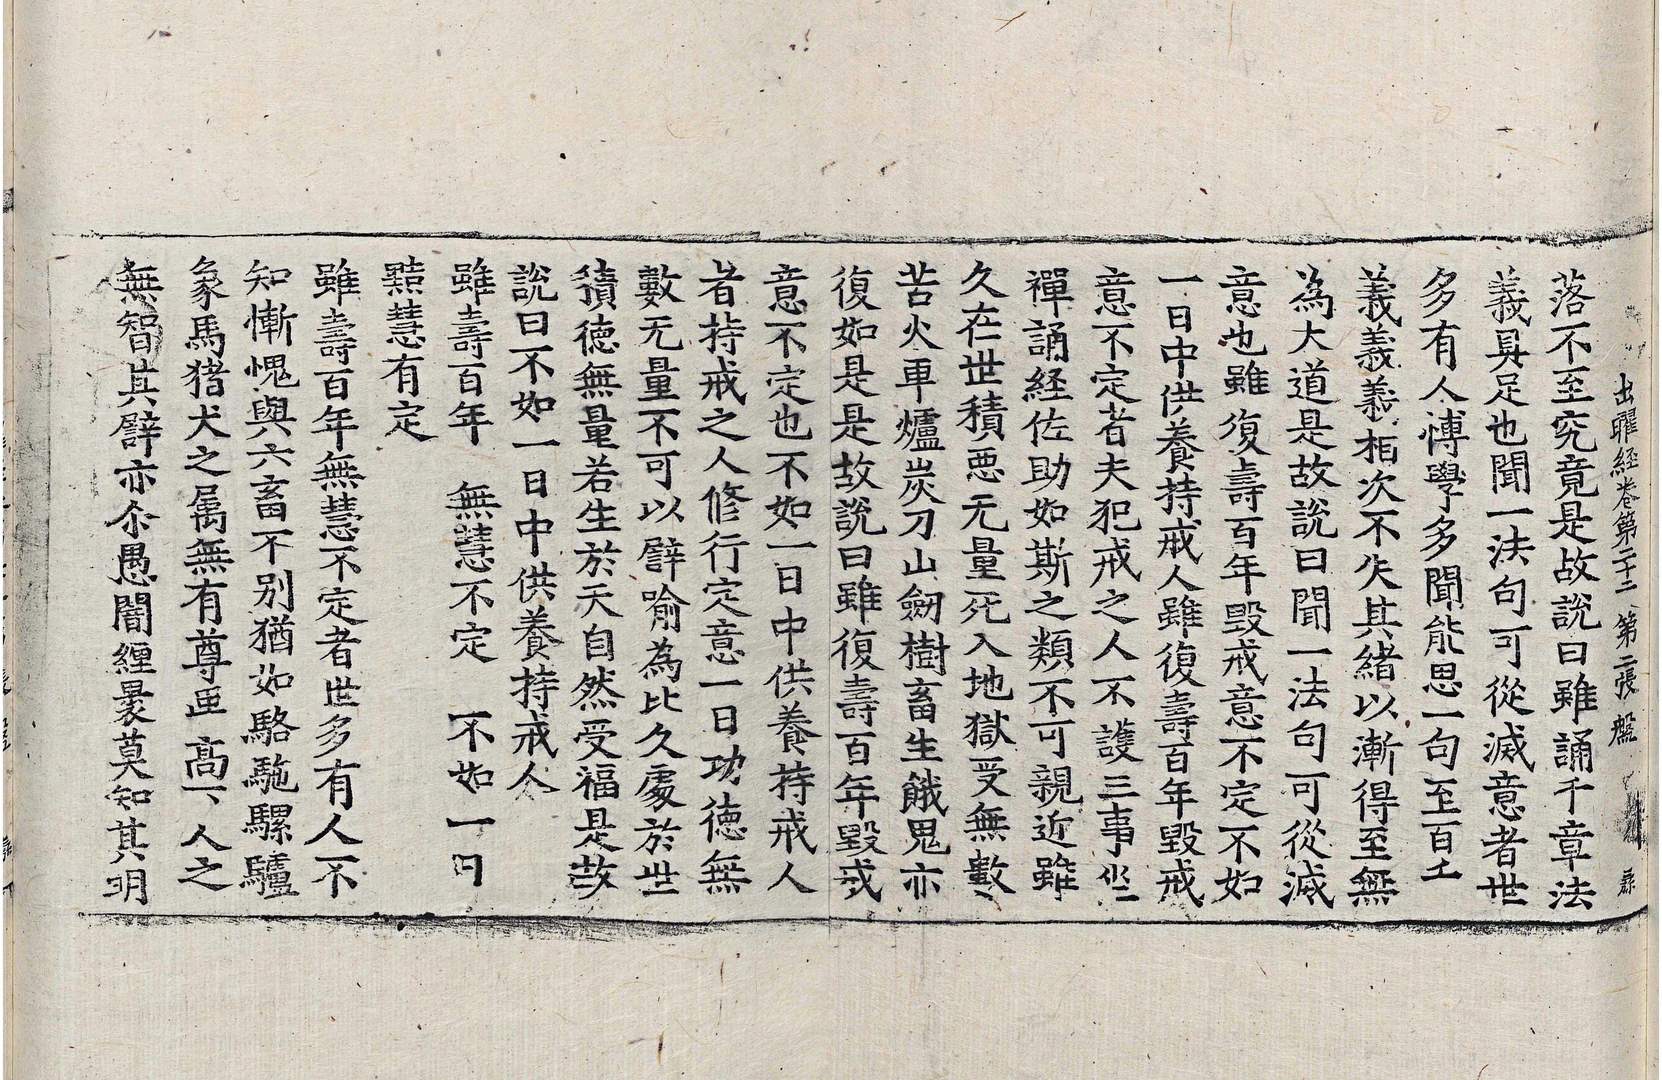 出曜経卷第二十二 第二張 盤
落不至究竟是故說曰雖誦千章法
義具足也聞一法句可從滅意者世
多有人愽學多聞能思一句至百千
義義義相次不失其緒以漸得至無
為大道是故說曰聞一法句可從滅
意也雖復壽百年毀戒意不定不如
一日中供養持戒人雖復壽百年毀戒
意不定者夫犯戒之人不護三事坐
禪誦経佐助如斯之類不可親近雖
久在世積惡无量死入地獄受無數
苦火車爐炭刀山劒樹畜生餓鬼亦
復如是是故說曰雖復壽百年毀戒
意不定也不如一日中供養持戒人
者持戒之人修行定意一日功德無
數无量不可以譬喻為比久處於世
積德無量若生於天自然受福是故
說曰不如一日中供養持戒人
雖壽百年 無慧不定 不如一日
黠慧有定
雖壽百年無慧不定者世多有人不
知慚愧與六畜不別猶如駱駞騾驢
象馬猪犬之属無有尊卑高下人之
無智其譬亦尒愚闇纒裹莫知其明